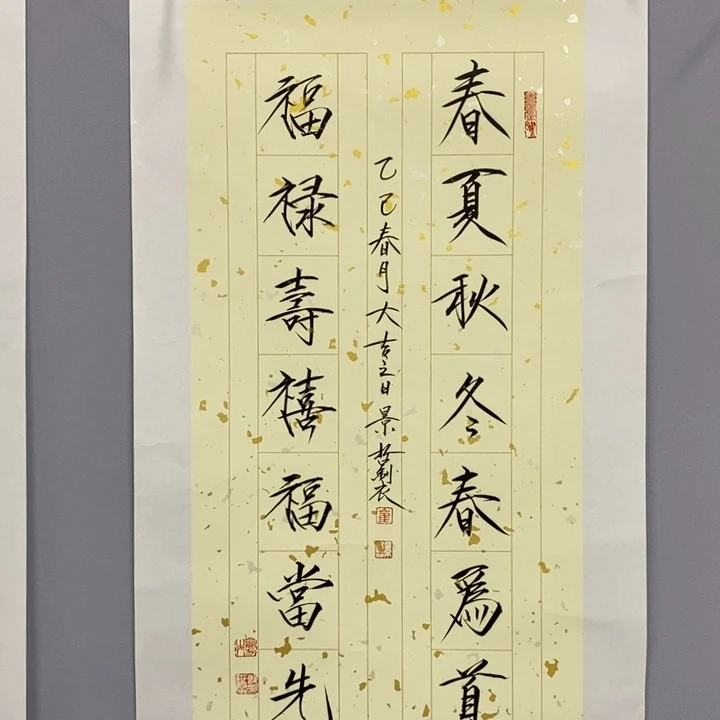 春夏秋冬春為首
福禄壽禧福當先
乙巳春月大吉之日景